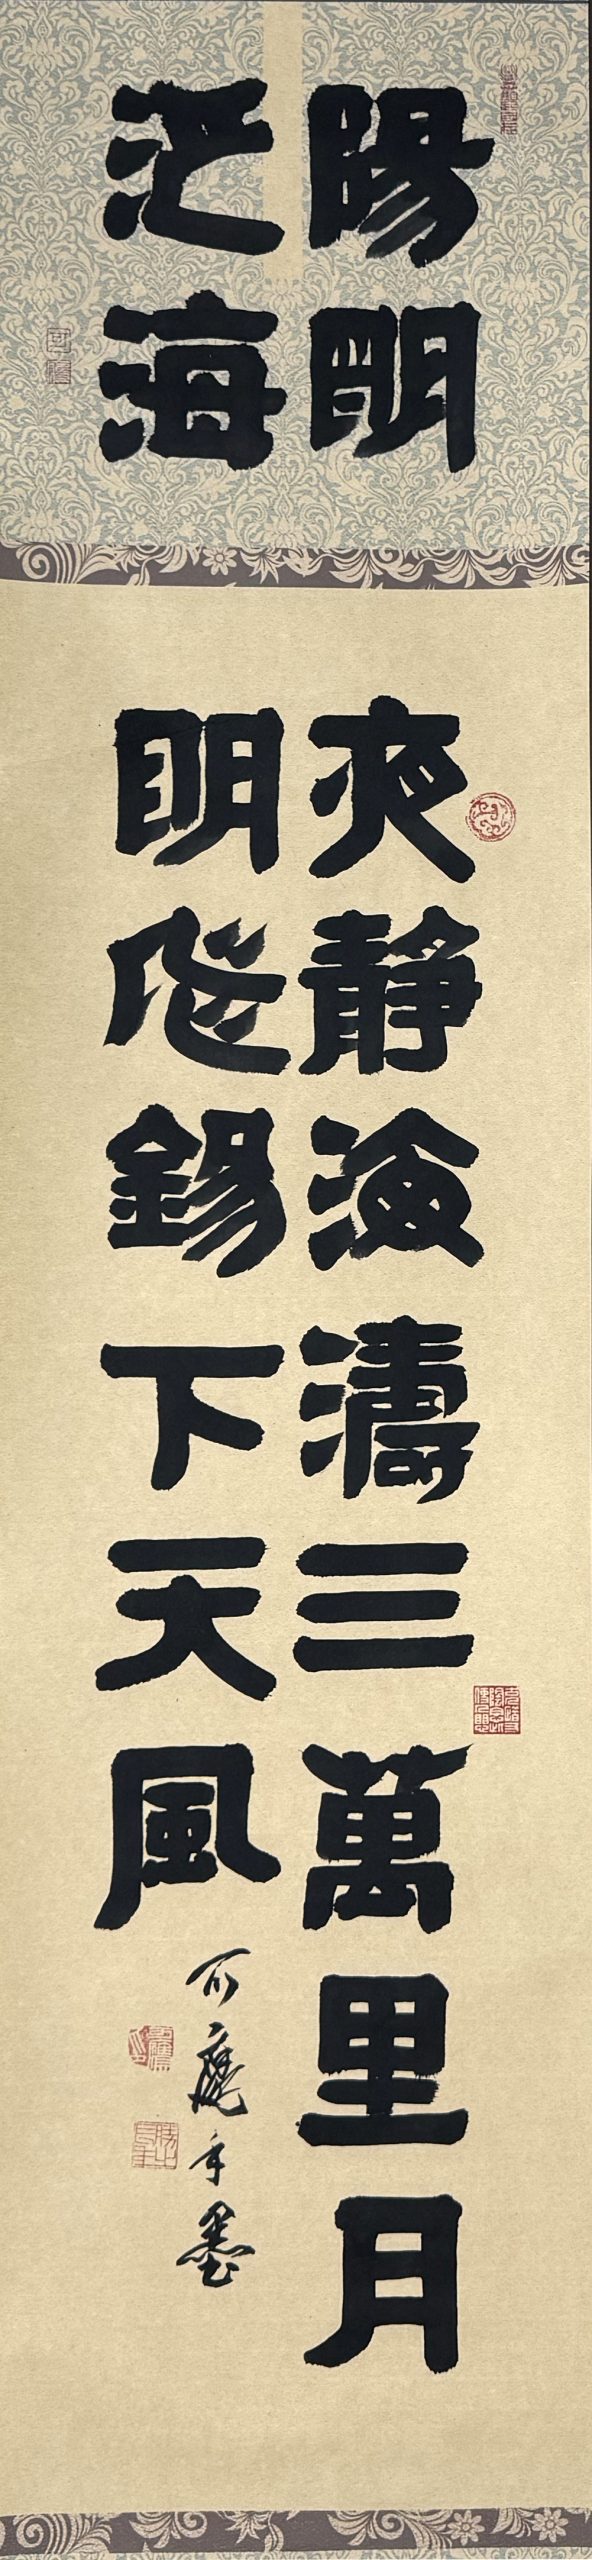 陽明
泛海
夜靜海濤三萬里月
明飛錫下天風
手墨